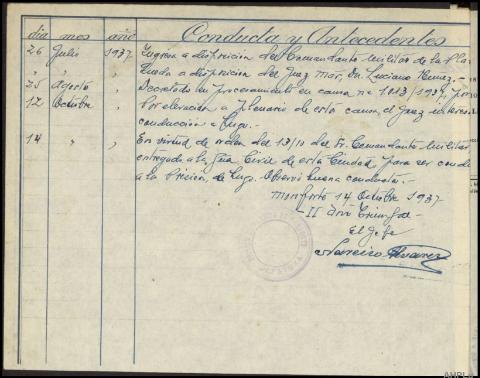 día mes año Conducta y Antecedentes
26 Julio 1937 Ingresa a disposición del Comandante Militar de la Pla
" " " Queda a disposición del Juez Mtar, Dn. Luciano
25 Agosto " Decretado su procesamiento en causa nº 1013/1937, por
12 Octubre " Por elevación a Plenario de esta causa, el Juez
conducción a Lugo.
14 " " En virtud de orden del 13/10 del Sr. Comandante Militar
entregado a la Gua Civil de esta Ciudad, para ser
a la Prisión de Lugo. Observó buena conducta.-
Monforte 14 Octubre 1937
- II Año Triunfal -
El Jefe
Narciso Alvarez
AHPLU